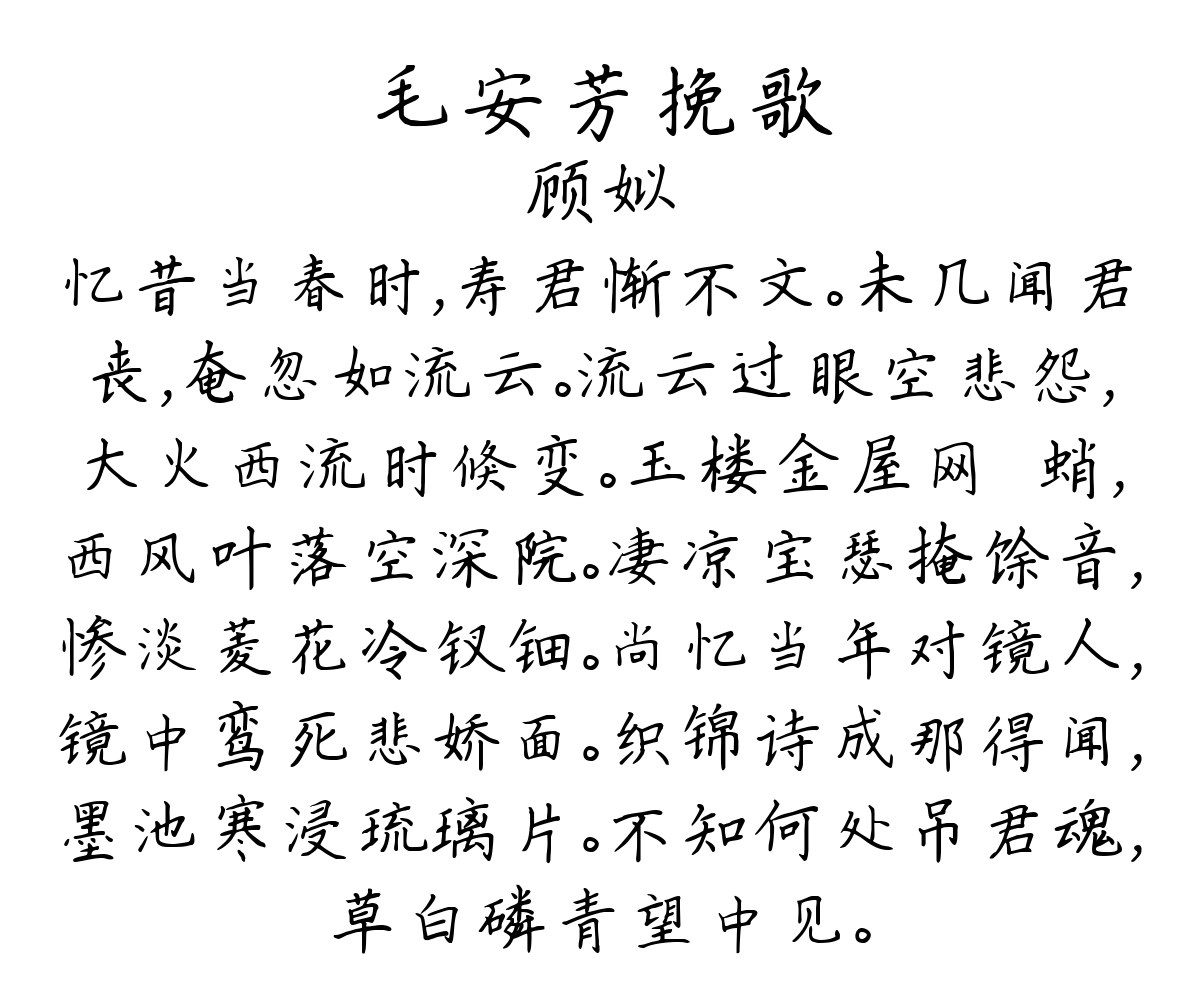 毛安芳挽歌
顾姒
忆昔当春时,寿君惭不文。未几闻君
丧,奄忽如流云。流云过眼空悲怨,
大火西流时倏变。玉楼金屋网 蛸,
西风叶落空深院。凄凉宝瑟掩馀音,
惨淡菱花冷钗钿。尚忆当年对镜人,
镜中鸾死悲娇面。织锦诗成那得闻,
墨池寒浸琉璃片。不知何处吊君魂,
草白磷青望中见。